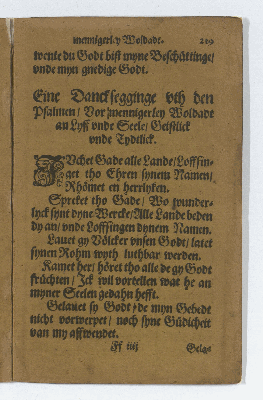 mennigerley Woldadt. 219
wente du Godt bist myne Beschüttinge/
vnde myn gnedige Godt.
Eine Dancksegginge vth den
Psalmen/ Vor mennigerley Woldadt
an Lyff vnde Seele/ Geistlick
vnde Tydtlick.
JVchet Gade alle Lande/ Loffsin-
get tho Ehren synem Namen/
Rhömet en herrlyken.
Spreket tho Gade/ Wo wunder-
lyck synt dyne Wercke/ Alle Lande beden
dy an/ vnde Loffsingen dynem Namen.
Lauet gy Völcker vnsen Godt/ latet
synen Rohm wyth luthbar werden.
Kamet her/ höret tho alle de gy Godt
früchten/ Ick wil vortellen wat he an
myner Seelen gedahn hefft.
Gelauet sy Godt/ de myn Gebedt
nicht vorwerpet/ noch syne Güdicheit
van my affwendet.
Ff iiij Gelga